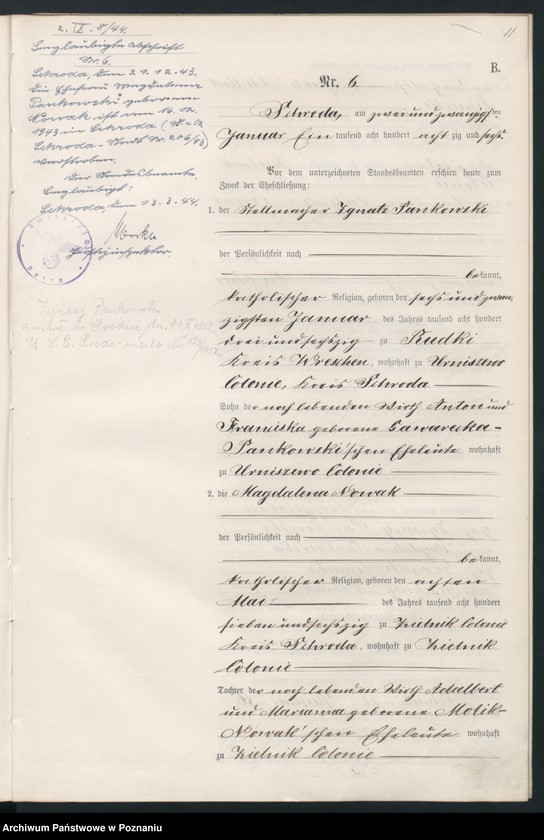 11
B.
Nr. 6.
Schroda, am zweiundzwanzigsten
Januar Ein tausend acht hundert acht zig und sechs.
Vor dem unterzeichneten Standesbeamten erschien heute zum
Zweck der Eheschließung:
1. der Stellmacher Ignatz Pankowski
der Persönlichkeit nach
bekannt,
katholischer Religion, geboren den sechsundzwan-
zigsten Januar des Jahres tausend acht hundert
dreiundsechszig zu Rudki
Kreis Wreschen, wohnhaft zu Urniszewo
Colonie, Kreis Schroda
Sohn der noch lebenden Wirth Anton und
Franziska geborene Gawarecka-
Pankowski'schen Eheleute wohnhaft
zu Urniszewo Colonie
2. die Magdalena Nowak
der Persönlichkeit nach
bekannt,
katholischer Religion, geboren den achten
Mai des Jahres tausend acht hundert
siebenundsechszig zu Zielnik Colonie
Kreis Schroda, wohnhaft zu Zielnik
Colonie
Tochter der noch lebenden Wirth Adalbert
und Marianna geborene Molik-
Nowak'schen Eheleute wohnhaft
zu Zielnik Colonie
2. IX. 8/44.
Beglaubigte Abschrift
Nr. 6.
Schroda, den 21.12.43.
Die Ehefrau Magdalena
Pankowski geborene
Nowak ist am 16.12.
1943 in Schroda
Schroda-Stadt Nr. 206/43)
verstorben.
Der Standesbeamte.
Beglaubigt:
Schroda, den 13.3.44.
Justizinspektor.
Ignacy Pankowski
zmarł w Środzie dn.
U.S.C. Środa-miasto Nr.
Archiwum Państwowe w Poznaniu